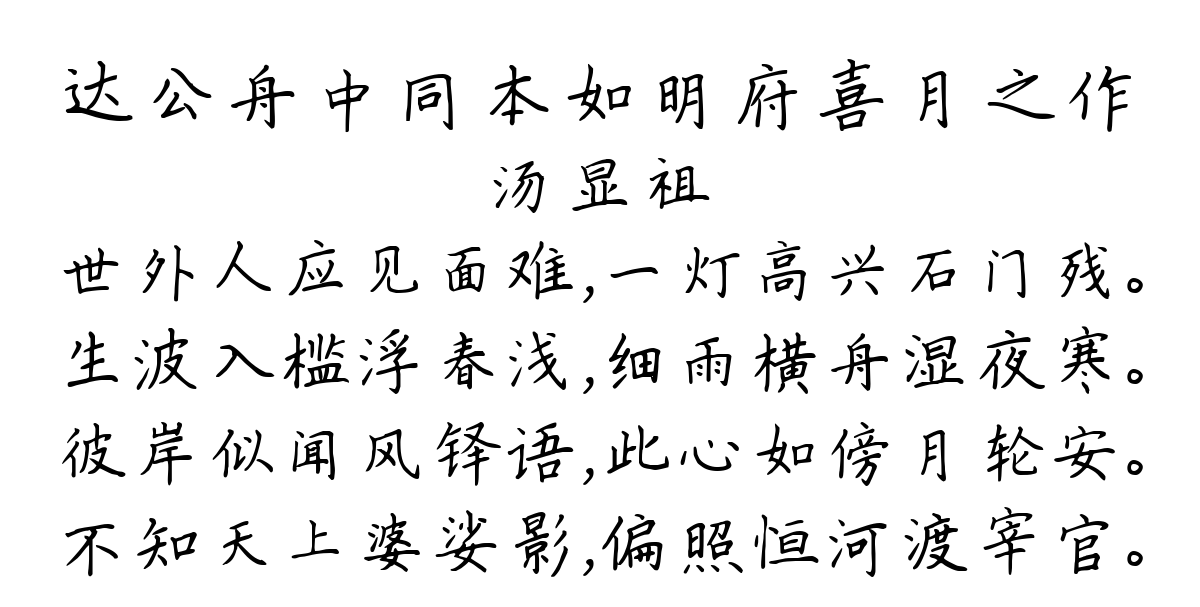 达公舟中同本如明府喜月之作
汤显祖
世外人应见面难,一灯高兴石门残。
生波入槛浮春浅,细雨横舟湿夜寒。
彼岸似闻风铎语,此心如傍月轮安。
不知天上婆娑影,偏照恒河渡宰官。